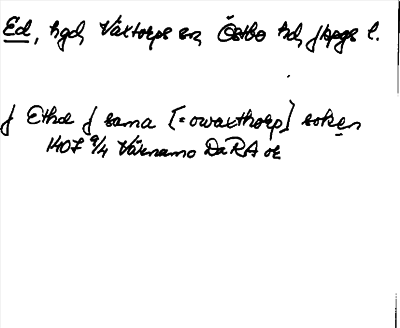 Ed, hgd, Våxtorps sn, Östbo hd, Jkpgs l.
J Ethe J sama [= owaxthorp] soken
1407 9/4 Värnamo DaRA or